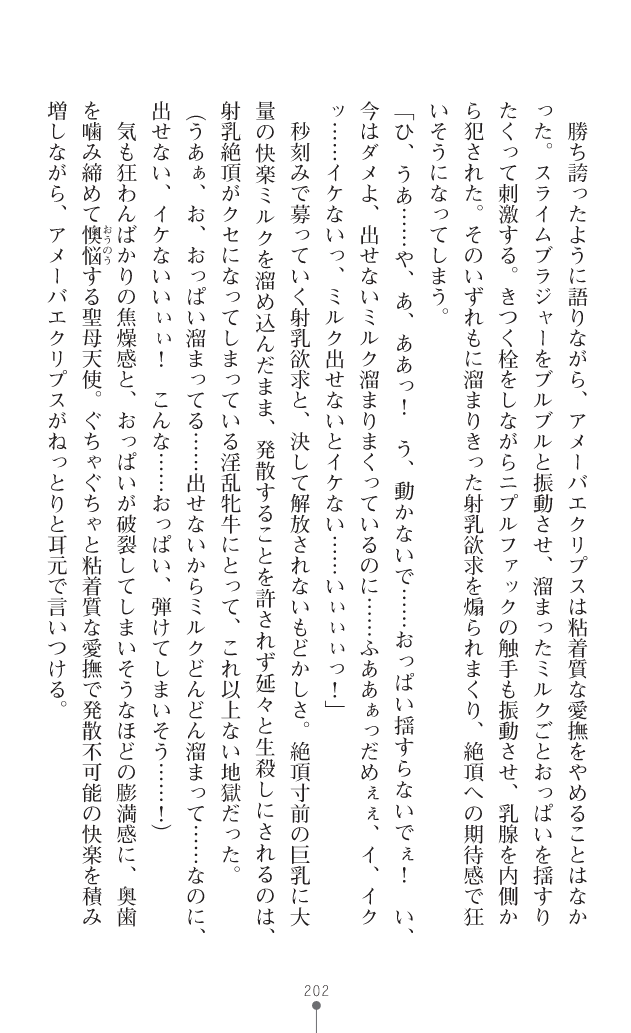 勝ち誇ったように語りながら、アメーバエクリプスは粘着質な愛撫をやめることはなか
った。スライムブラジャーをブルブルと振動させ、溜まったミルクごとおっぱいを揺すり
たくって刺激する。きつく栓をしながらニプルファックの触手も振動させ、乳腺を内側か
ら犯された。そのいずれもに溜まりきった射乳欲求を煽られまくり、絶頂への期待感で狂
いそうになってしまう。
「ひ、うあ……や、あ、ああっ！　う、動かないで……おっぱい揺すらないでぇ！　い、
今はダメよ、出せないミルク溜まりまくっているのに……ふああぁっだめぇぇ、イ、イク
ッ……イケないっ、ミルク出せないとイケない……いぃぃぃっ！」
秒刻みで募っていく射乳欲求と、決して解放されないもどかしさ。絶頂寸前の巨乳に大
量の快楽ミルクを溜め込んだまま、発散することを許されず延々と生殺しにされるのは、
射乳絶頂がクセになってしまっている淫乱牝牛にとって、これ以上ない地獄だった。
（うあぁ、お、おっぱい溜まってる……出せないからミルクどんどん溜まって……なのに、
出せない、イケないいぃぃ！　こんな……おっぱい、弾けてしまいそう……！）
気も狂わんばかりの焦燥感と、おっぱいが破裂してしまいそうなほどの膨満感に、奥歯
を噛み締めて懊悩おうのうする聖母天使。ぐちゃぐちゃと粘着質な愛撫で発散不可能の快楽を積み
増しながら、アメーバエクリプスがねっとりと耳元で言いつける。
202